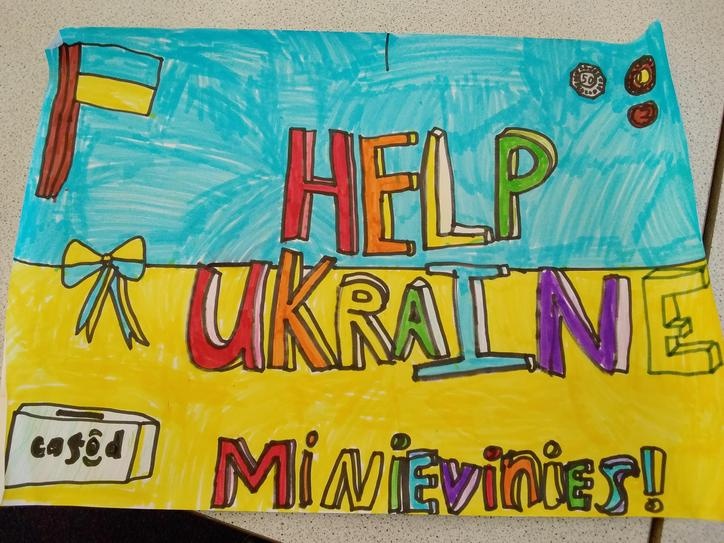 50
HELP
UKRAINE
cafôd
MiNiEviniES!